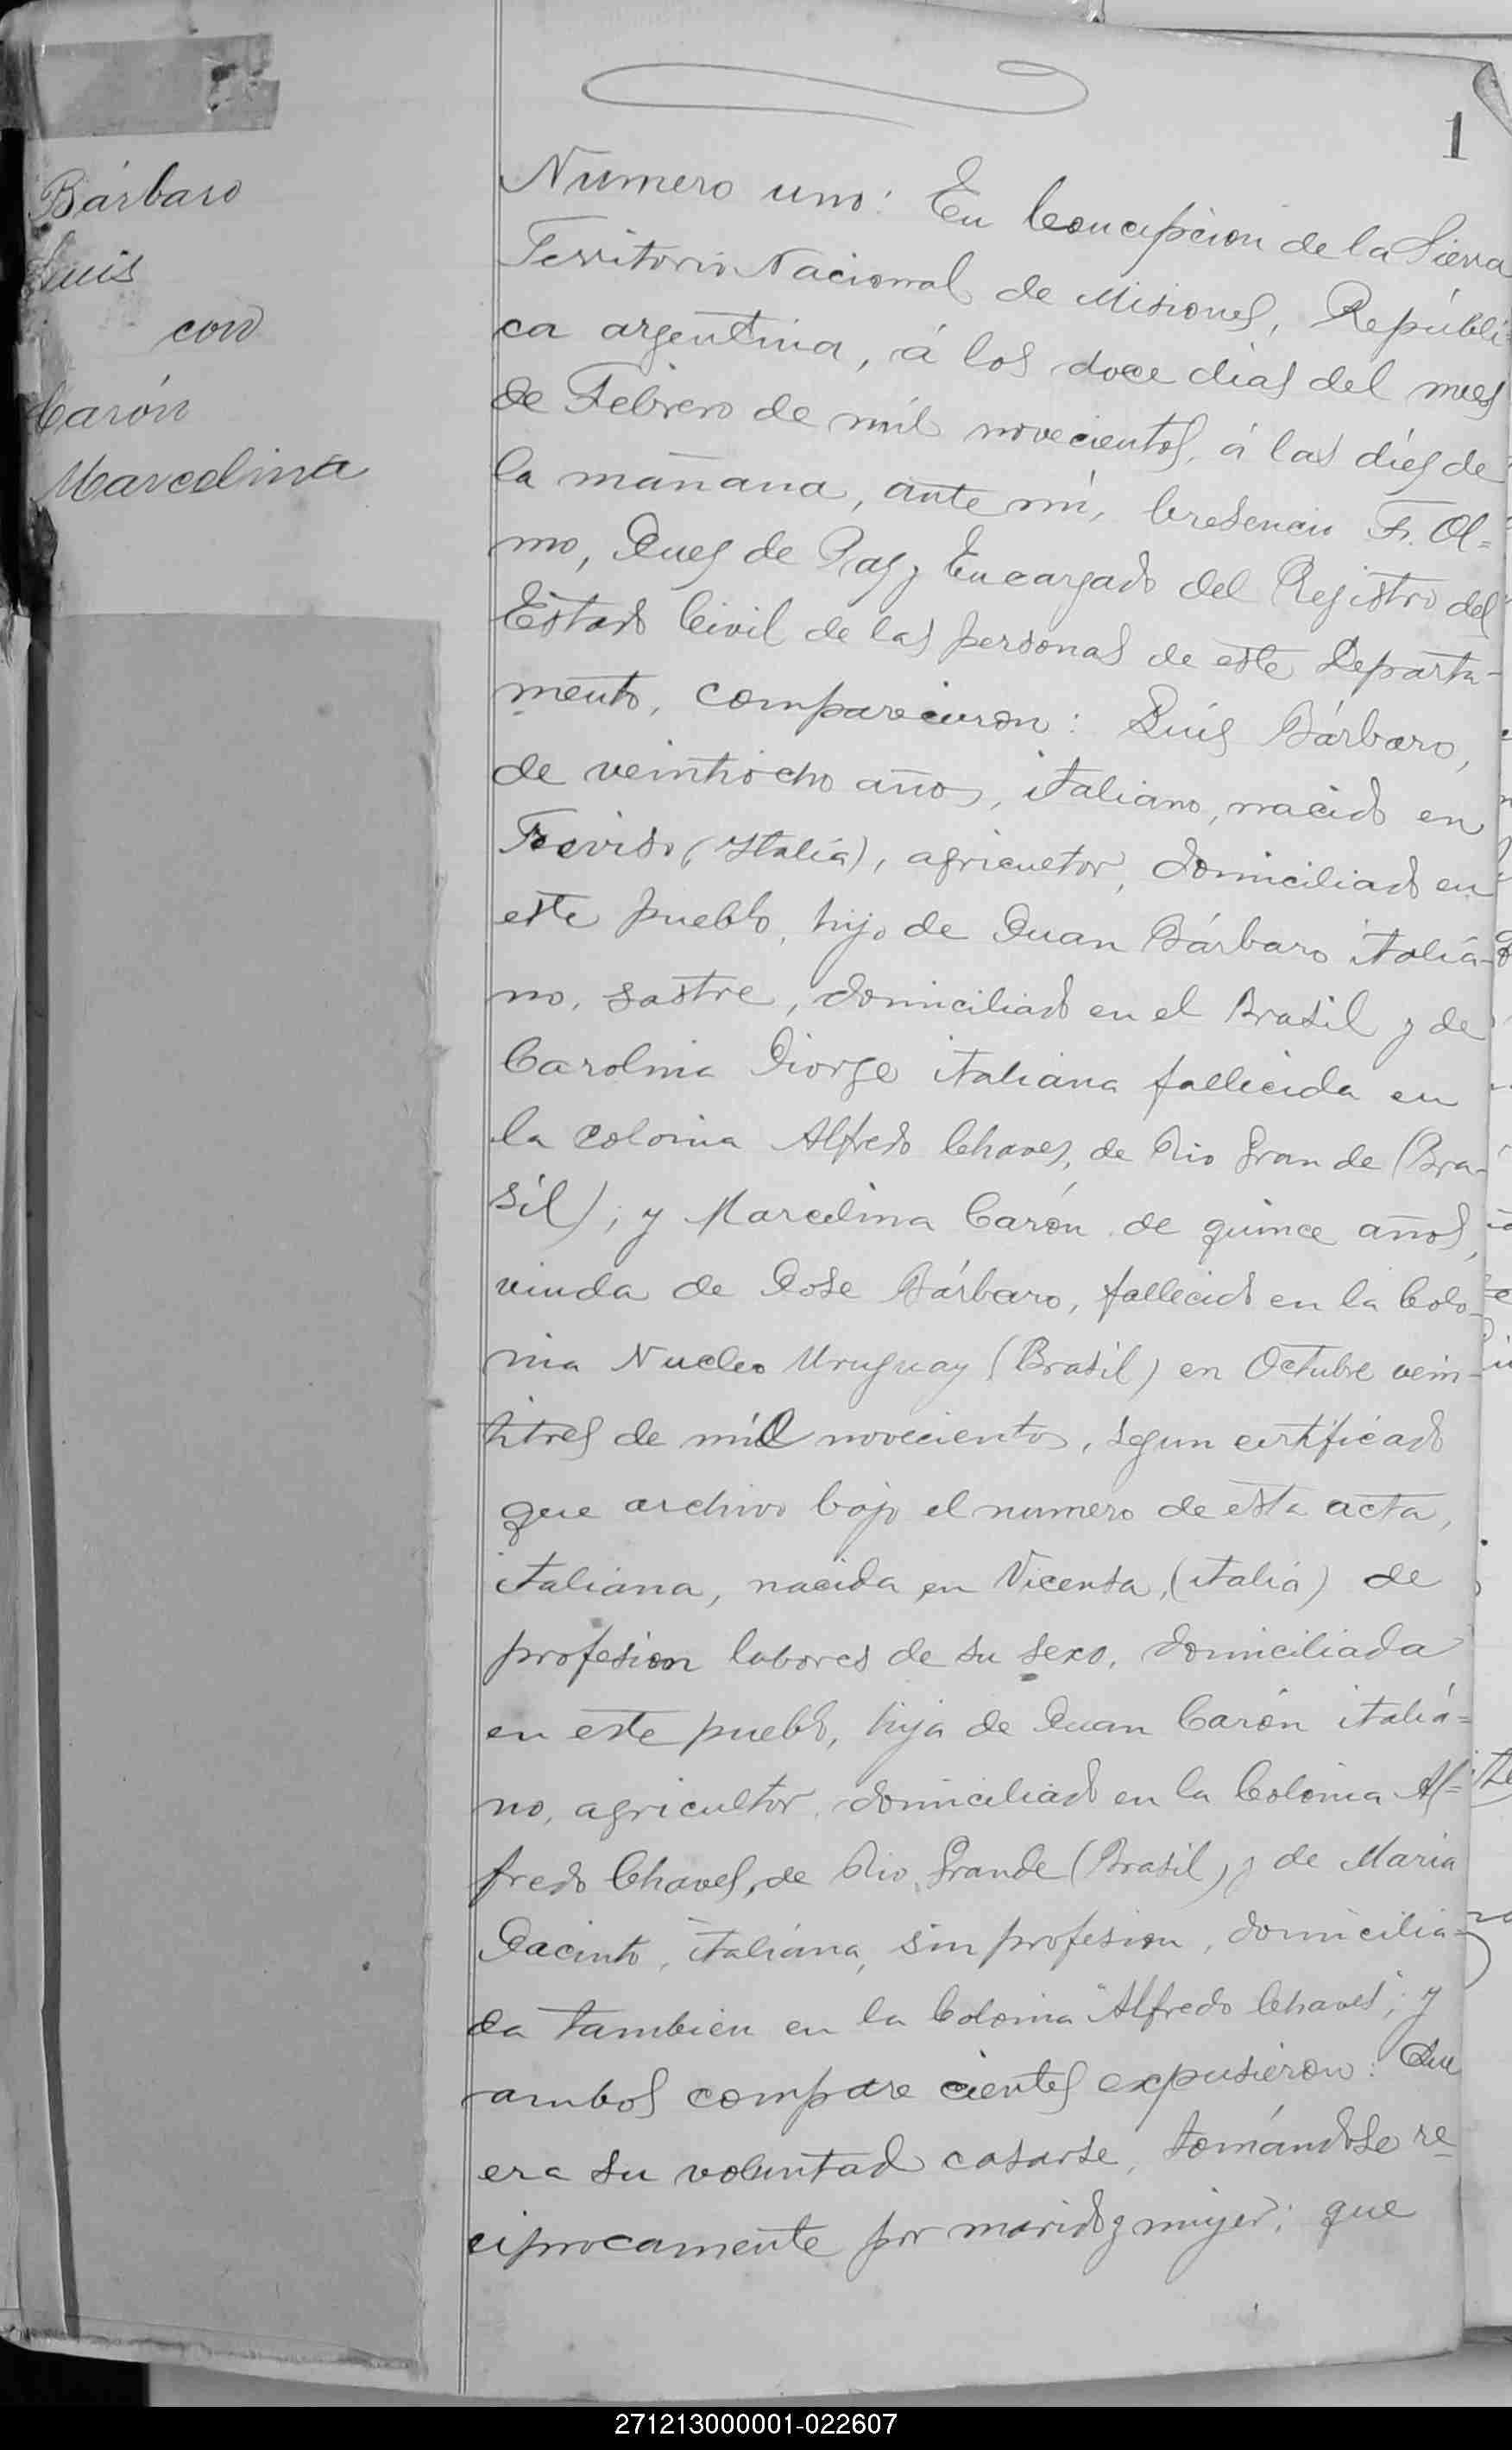 1
Bárbaro
Luis
con
Carón
Marcelina
Numero uno: En Concepcion de la Sierra
Territorio Nacional de Misiones, Repúbli-
ca argentina, á los doce dias del mes
de Febrero de mil novecientos, á las diez de
la mañana, ante mi, Cresencio F. Ol=
mo, Juez de Paz y Encargado del Registro del
Estado Civil de las personas de este Departa-
mento, comparecieron: Luis Bárbaro,
de veintiocho años, italiano, nacido en
Treviso (Italia), agricultor, domiciliado en
este pueblo, hijo de Juan Bárbaro italia-
no, sastre, domiciliado en el Brasil y de
Carolina Giorge italiana fallecida en
la colonia Alfredo Chaves, de Rio Grande (Bra-
sil); y Marcelina Carón de quince años,
viuda de Jose Bárbaro, fallecido en la Colo-
nia Nucleo Uruguay (Brasil) en Octubre vein-
titres de mil novecientos, segun certificado
que archivo bajo el numero de esta acta,
italiana, nacida en Vicensa, (italia) de
profesion labores de su sexo, domiciliada
en este pueblo, hija de Juan Carón italia=
no, agricultor, domiciliado en la Colonia Al=
fredo Chaves, de Rio Grande (Brasil) y de Maria
Jacinto, italiana, sin profesion, domicilia-
da tambien en la Colonia "Alfredo Chaves"; y
ambos compare cientes expusieron: Que
era su voluntad casarse, tomándose re-
ciprocamente por marido y mujer; que
271213000001-022607